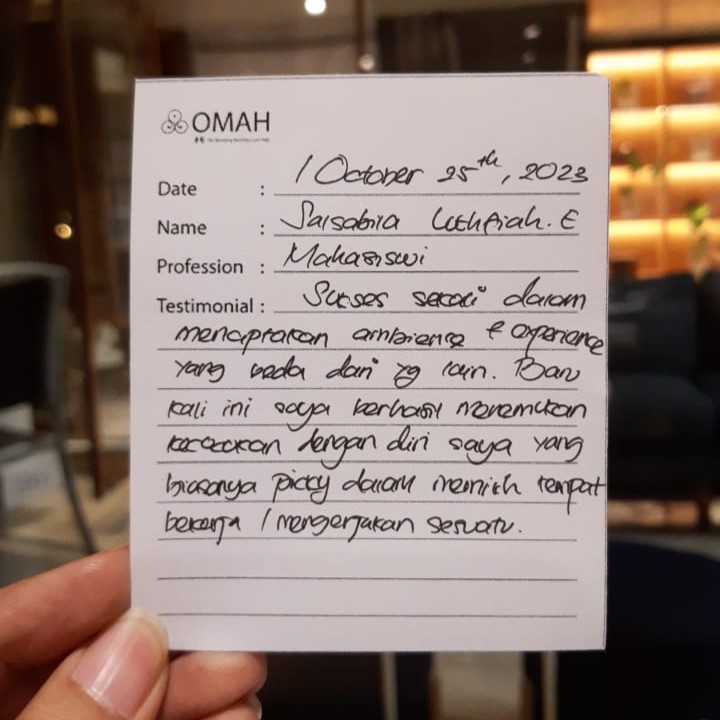 OMAH
Date : / October 25th, 2023
Name : Salsabila Luthfiah. E
Profession : Mahasiswi
Testimonial : Sukses sekali dalam
menciptakan ambience & experience
yang beda dari yg lain. Baru
kali ini saya berhasil menemukan
kecocokan dengan diri saya yang
biasanya picky dalam memilih tempat
bekerja / mengerjakan sesuatu.